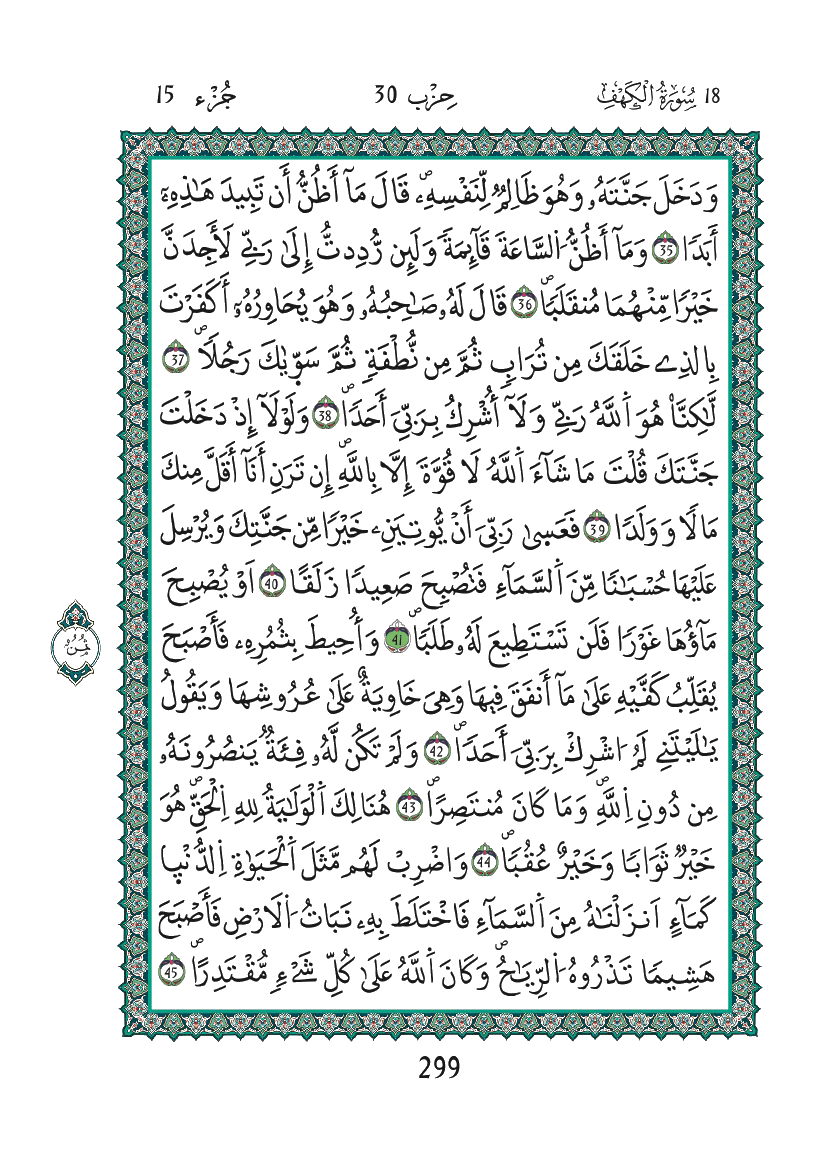 18 سُورَةُ الْكَهْفِ حِزْب 30 جُزْء 15
وَدَخَلَ جَنَّتَهُۥ وَهُوَ ظَالِمٞ لِّنَفْسِهِۦۖ قَالَ مَآ أَظُنُّ أَن تَبِيدَ هَٰذِهِۦٓ
أَبَدٗا 35 وَمَآ أَظُنُّ اُ۬لسَّاعَةَ قَآئِمَةٗ وَلَئِن رُّدِدتُّ إِلَىٰ رَبِّے لَأَجِدَنَّ
خَيْرٗا مِّنْهُمَا مُنقَلَبٗاۖ 36 قَالَ لَهُۥ صَاحِبُهُۥ وَهُوَ يُحَاوِرُهُۥٓ أَكَفَرْتَ
بِالذِے خَلَقَكَ مِن تُرَابٖ ثُمَّ مِن نُّطْفَةٖ ثُمَّ سَوّ۪يٰكَ رَجُلٗاۖ 37
لَّٰكِنَّا۠ هُوَ اَ۬للَّهُ رَبِّے وَلَآ أُشْرِكُ بِرَبِّيَ أَحَدٗاۖ 38 وَلَوْلَآ إِذْ دَخَلْتَ
جَنَّتَكَ قُلْتَ مَا شَآءَ اَ۬للَّهُ لَا قُوَّةَ إِلَّا بِاللَّهِۖ إِن تَرَنِ أَنَآ أَقَلَّ مِنكَ
مَالٗا وَوَلَدٗا 39 فَعَس۪يٰ رَبِّيَ أَنْ يُّوتِيَنِۦ خَيْرٗا مِّن جَنَّتِكَ وَيُرْسِلَ
عَلَيْهَا حُسْبَانٗا مِّنَ اَ۬لسَّمَآءِ فَتُصْبِحَ صَعِيدٗا زَلَقًا 40 اَوْ يُصْبِحَ
مَآؤُهَا غَوْرٗا فَلَن تَسْتَطِيعَ لَهُۥ طَلَبٗاۖ 41 وَأُحِيطَ بِثُمُرِهِۦ فَأَصْبَحَ
يُقَلِّبُ كَفَّيْهِ عَلَىٰ مَآ أَنفَقَ فِيهَا وَهِيَ خَاوِيَةٌ عَلَىٰ عُرُوشِهَا وَيَقُولُ
يَٰلَيْتَنِے لَمُ ا۟شْرِكْ بِرَبِّيَ أَحَدٗاۖ 42 وَلَمْ تَكُن لَّهُۥ فِئَةٞ يَنصُرُونَهُۥ
مِن دُونِ اِ۬للَّهِۖ وَمَا كَانَ مُنتَصِرًاۖ 43 هُنَالِكَ اَ۬لْوَلَٰيَةُ لِلهِ اِ۬لْحَقِّۖ هُوَ
خَيْرٞ ثَوَابٗا وَخَيْرٌ عُقُبٗاۖ 44 وَاضْرِبْ لَهُم مَّثَلَ اَ۬لْحَيَوٰةِ اِ۬لدُّنْي۪ا
كَمَآءٍ اَنزَلْنَٰهُ مِنَ اَ۬لسَّمَآءِ فَاخْتَلَطَ بِهِۦ نَبَاتُ اُ۬لَارْضِ فَأَصْبَحَ
هَشِيمٗا تَذْرُوهُ اُ۬لرِّيَٰحُۖ وَكَانَ اَ۬للَّهُ عَلَىٰ كُلِّ شَےْءٖ مُّقْتَدِرًاۖ 45
ثُمُن
299